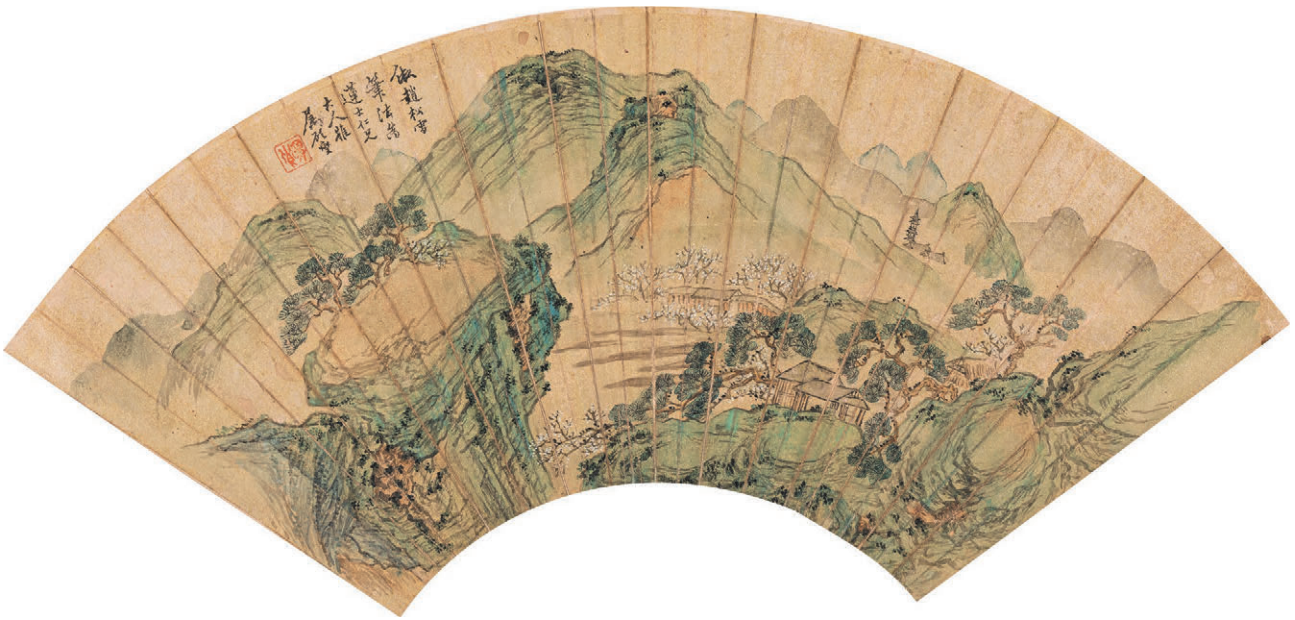 倣趙松雪
筆法為
蓮士仁兄
大人雅
屬